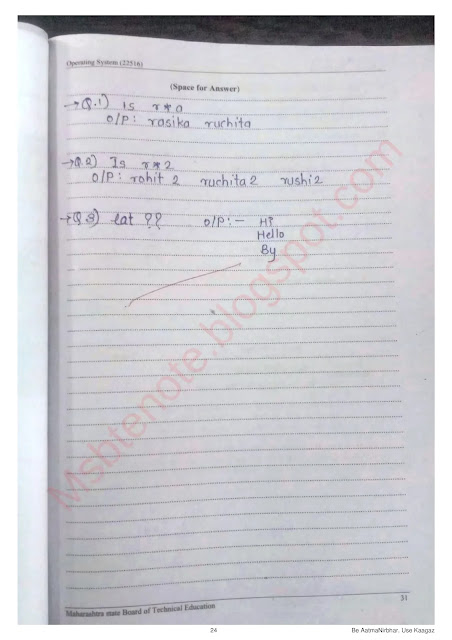 Operating System (22516)
(Space for Answer)
→Q.1) Is r*a
O/P: rasika ruchita
→Q 2) Is r*2
O/P: rohit 2 ruchita 2 rushi 2
→Q.3) lat ?? O/P:- Hi
Hello
By
Msbtenote.blogspot.com
31
Maharashtra state Board of Technical Education
24
Be AatmaNirbhar. Use Kaagaz